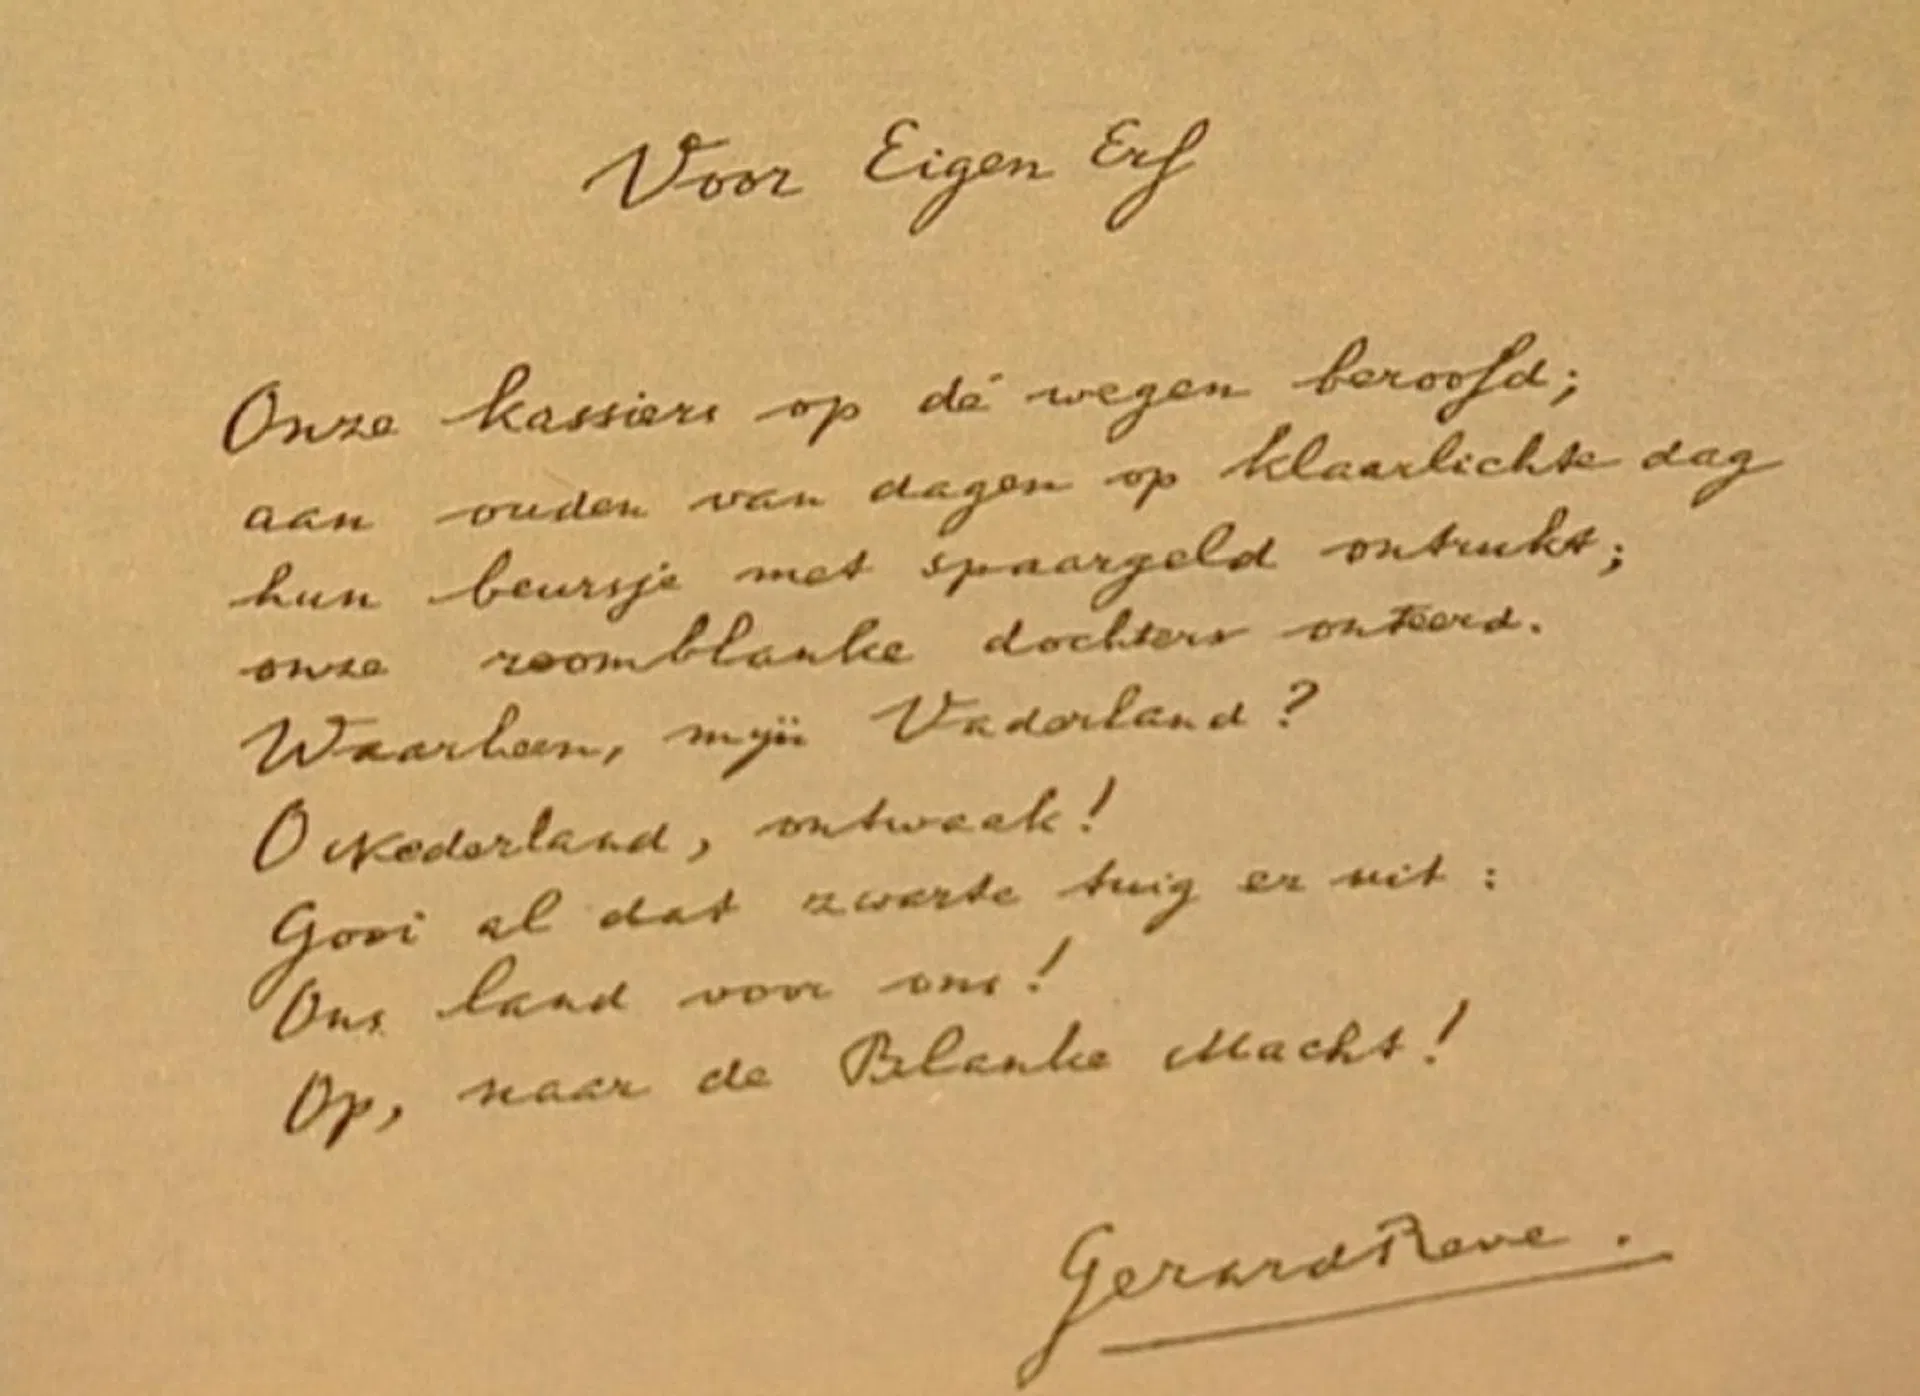 Voor Eigen Erf
Onze kassiers op dé wegen beroofd;
aan ouden van dagen op klaarlichte dag
hun beursje met spaargeld ontrukt;
onze roomblanke dochters onteerd.
Waarheen, mijn Vaderland?
O Nederland, ontwaak!
Gooi al dat zwarte tuig er uit:
Ons land voor ons!
Op, naar de Blanke Macht!
Gerard Reve.